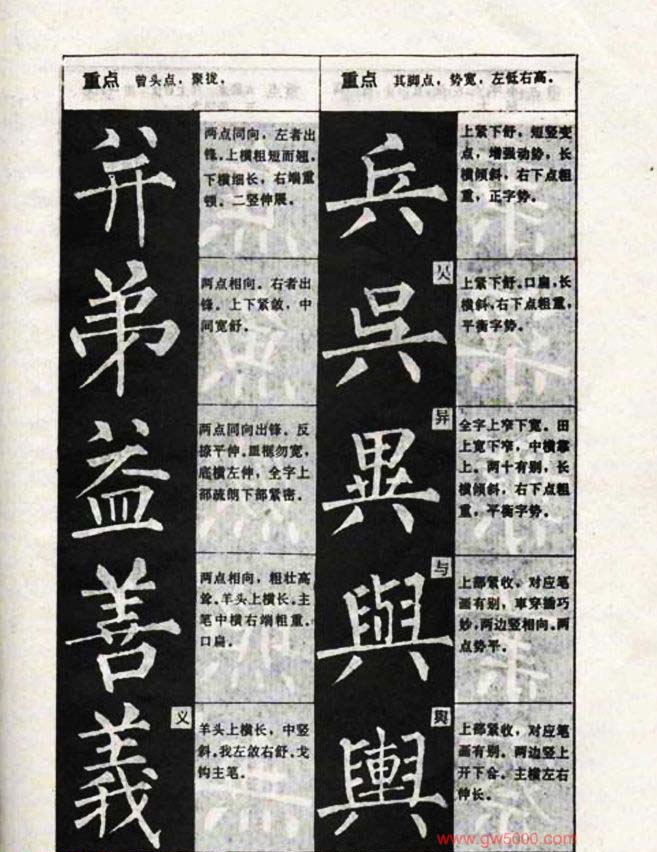 重点 曾头点，聚拢。
并
两点同向，左者出
锋。上横粗短而翘。
下横细长，右端重
顿。二竖伸展。
弟
两点相向。右者出
锋。上下紧敛，中
间宽舒。
益
两点同向出锋。反
捺平伸。皿框勿宽，
底横左伸，全字上
部疏朗下部紧密。
善
两点相向，粗壮高
耸。羊头上横长。主
笔中横右端粗重。
口扁。
義
义
羊头上横长，中竖
斜。我左敛右舒。戈
钩主笔。
重点 其脚点，势宽，左低右高。
兵
上紧下舒。短竖变
点，增强动势，长
横倾斜，右下点粗
重，正字势。
呉
吴
上紧下舒。口扁，长
横斜，右下点粗重，
平衡字势。
異
异
全字上窄下宽。田
上宽下窄，中横靠
上。两十有别，长
横倾斜，右下点粗
重，平衡字势。
與
与
上部紧收，对应笔
画有别，車穿插巧
妙，两边竖相向。两
点势平。
輿
舆
上部紧收，对应笔
画有别。两边竖上
开下合。主横左右
伸长。
www.gw5000.com